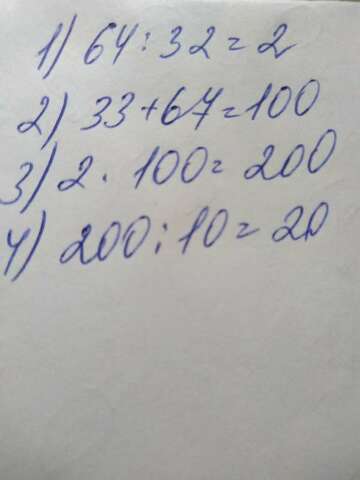 1) 64 : 32 = 2
2) 33 + 67 = 100
3) 2 · 100 = 200
4) 200 : 10 = 20